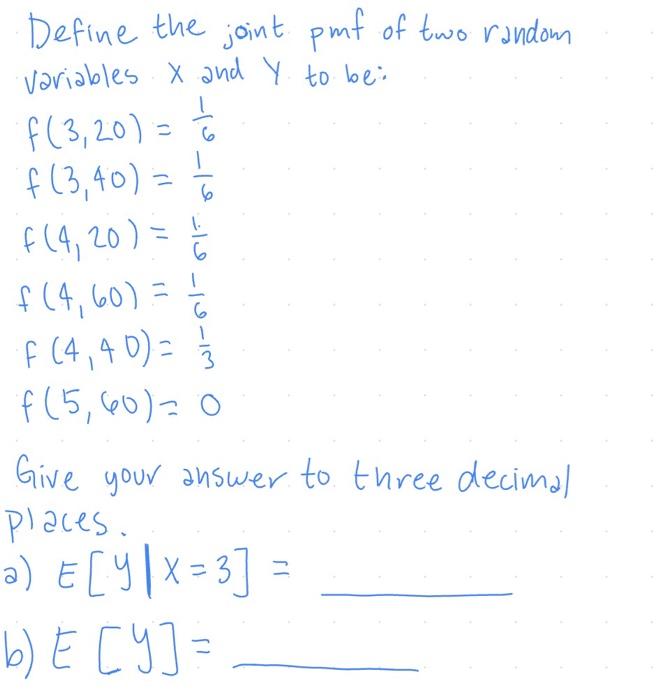 Define the joint pmf of two random
variables X and Y to be:
f(3,20) = 1/6
f(3,40) = 1/6
f(4,20) = 1/6
f(4,60) = 1/6
f(4,40) = 1/3
f(5,60) = 0
Give your answer to three decimal
places.
a) E[Y|X=3] = ________
b) E[Y] = ________